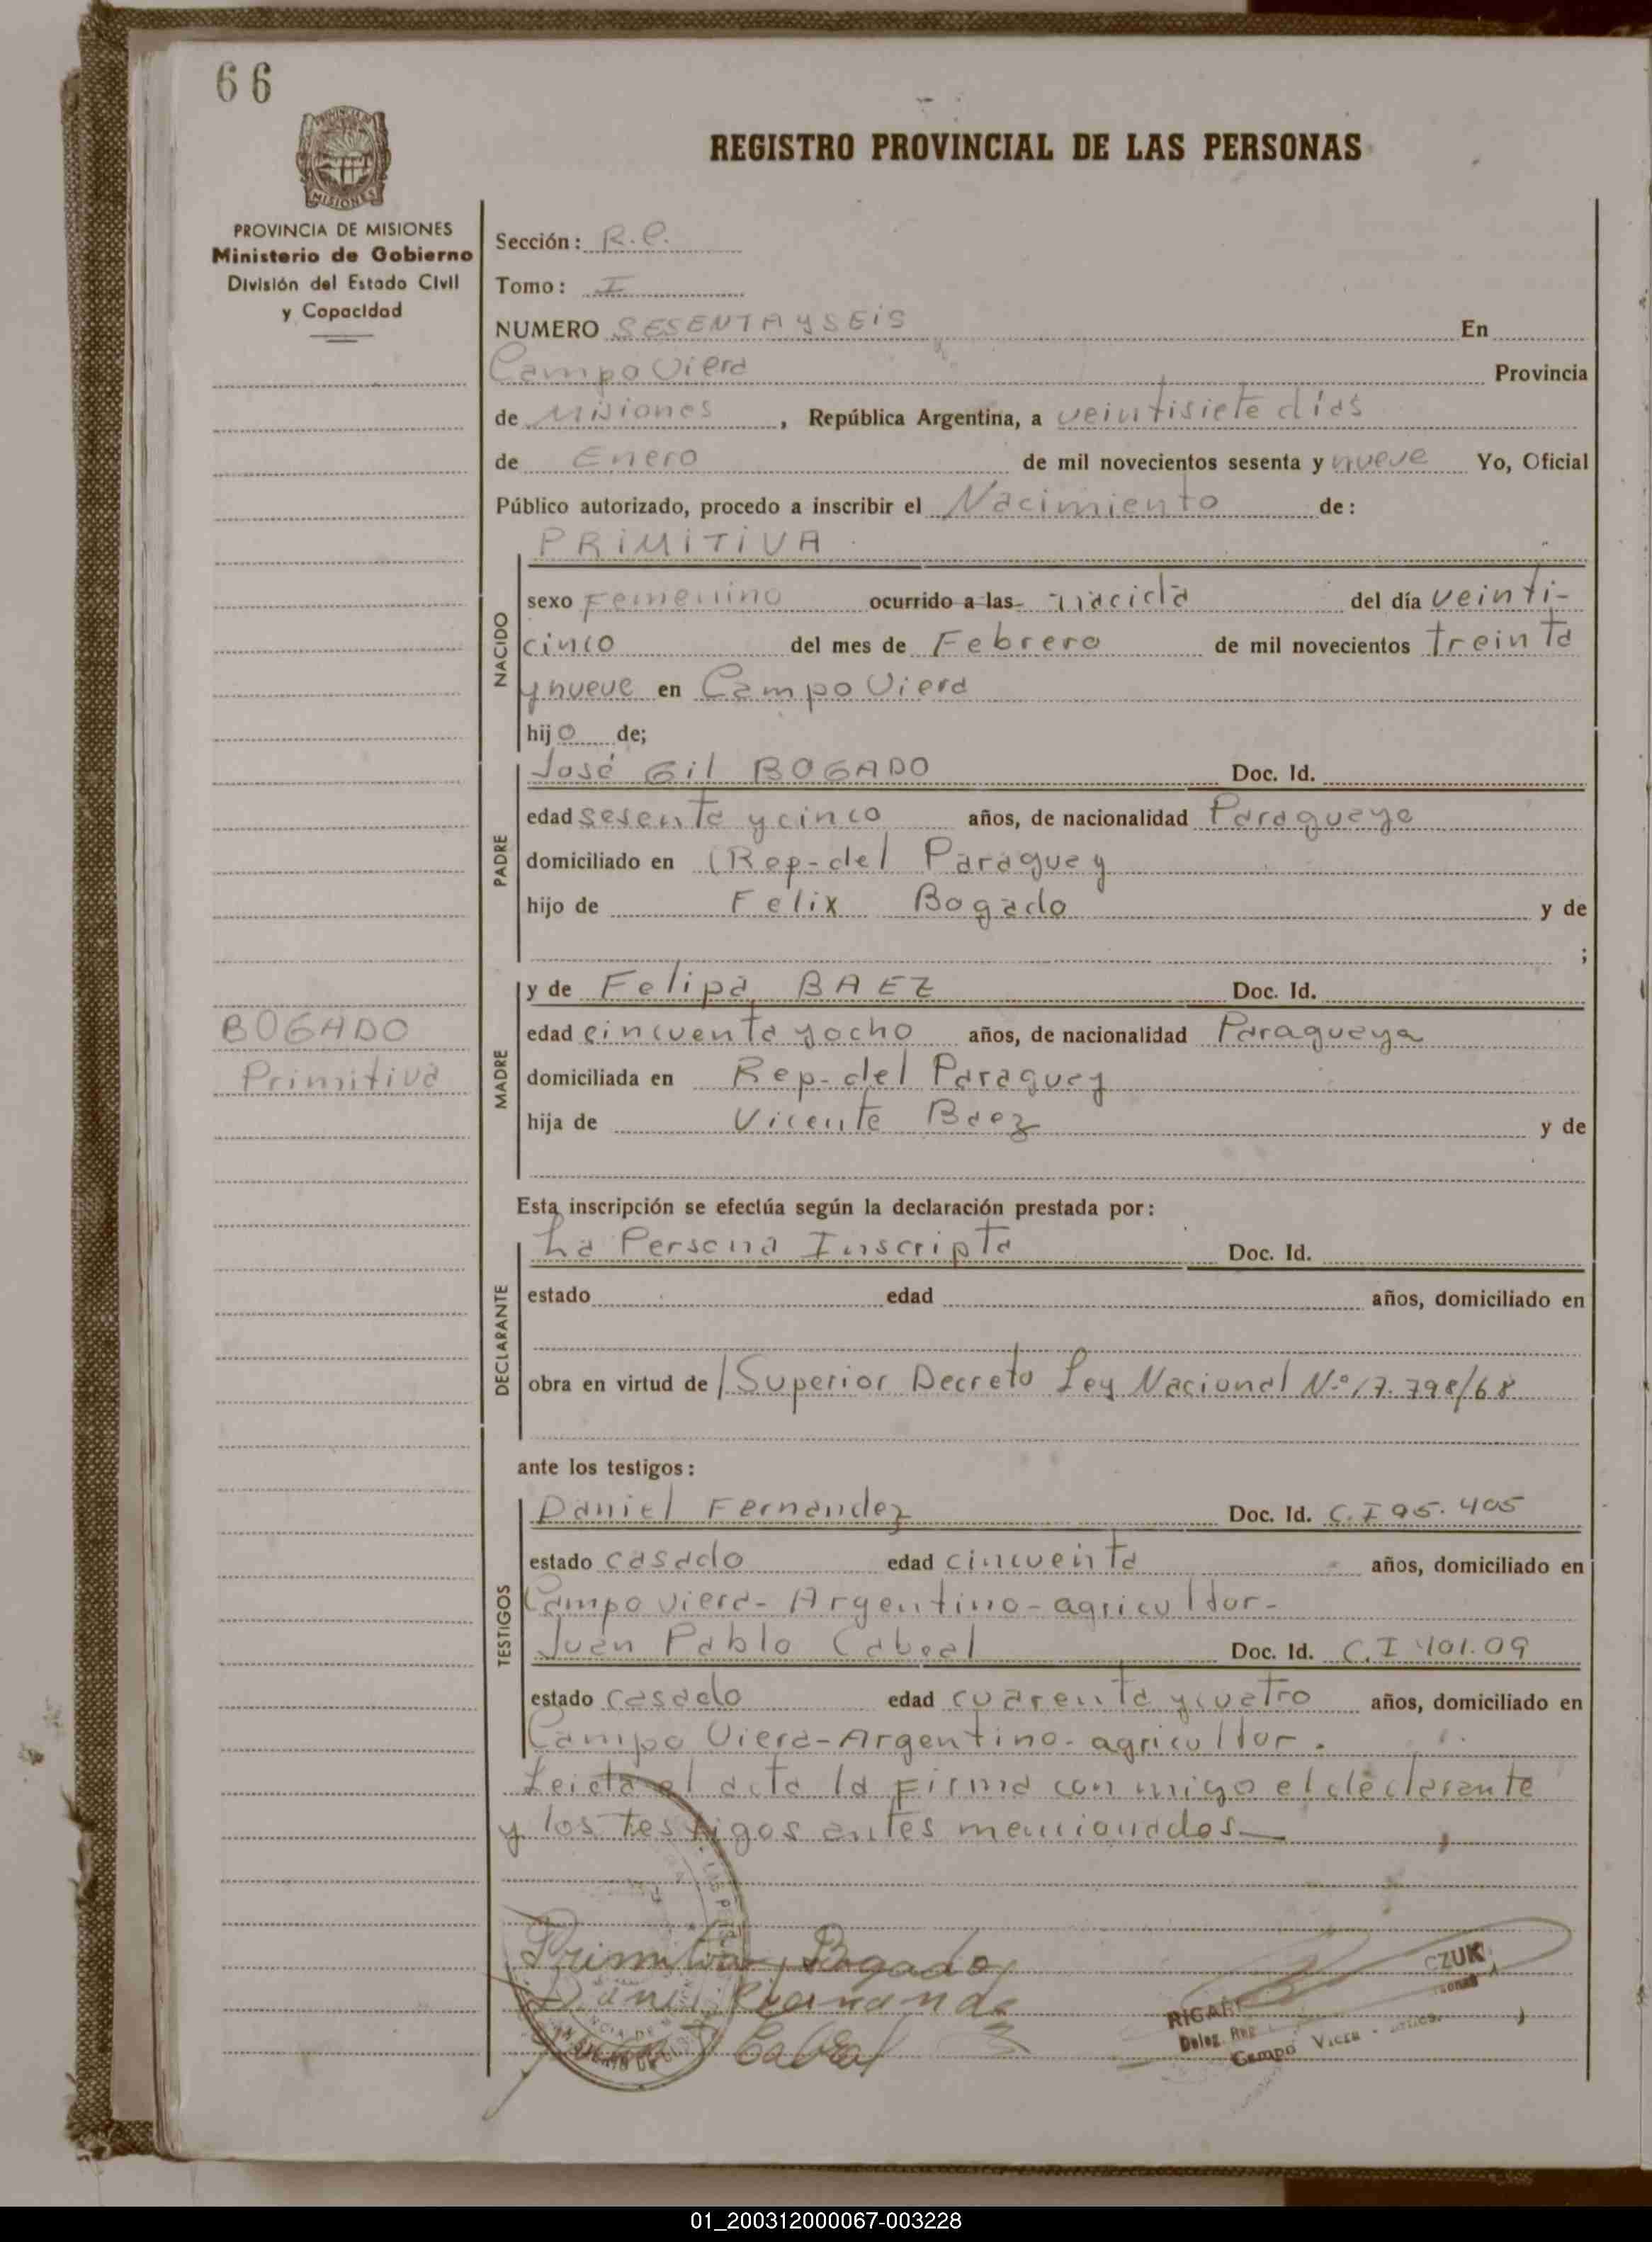 66
PROVINCIA DE MISIONES
PROVINCIA DE MISIONES
Ministerio de Gobierno
División del Estado Civil
y Capacidad
REGISTRO PROVINCIAL DE LAS PERSONAS
Sección: R.P.
Tomo: I
NUMERO SESENTA Y SEIS En
Campo Viera Provincia
de Misiones, República Argentina, a veintisiete dias
de Enero de mil novecientos sesenta y nueve Yo, Oficial
Público autorizado, procedo a inscribir el Nacimiento de:
PRIMITIVA
NACIDO
sexo Femenino ocurrido a las nacida del día veinti-
cinco del mes de Febrero de mil novecientos treinta
y nueve en Campo Viera
hijo de;
PADRE
José Gil BOGADO Doc. Id.
edad sesenta y cinco años, de nacionalidad Paraguaya
domiciliado en (Rep-del Paraguay
hijo de Felix Bogado y de
;
BOGADO
Primitiva
MADRE
y de Felipa BAEZ Doc. Id.
edad cincuenta y ocho años, de nacionalidad Paraguaya
domiciliada en Rep-del Paraguay
hija de Vicente Baez y de
Esta inscripción se efectúa según la declaración prestada por:
DECLARANTE
La Persona Inscripta Doc. Id.
estado edad años, domiciliado en
obra en virtud de / Superior Decreto Ley Nacional Nº 17.798/68
ante los testigos:
TESTIGOS
Daniel Fernandez Doc. Id. C.I 95.405
estado casado edad cincuenta años, domiciliado en
Campo Viera-Argentino-agricultor-
Juan Pablo Cabral Doc. Id. C.I 401.09
estado casado edad cuarenta y cuatro años, domiciliado en
Campo Viera-Argentino-agricultor.
Leida el acta la firma con migo el declarante
y los testigos antes mencionados
Primitiva Bogado
Daniel Fernandez
Cabral
CZUK
RICAR
Deleg. Reg.
Campo Viera
01_200312000067-003228